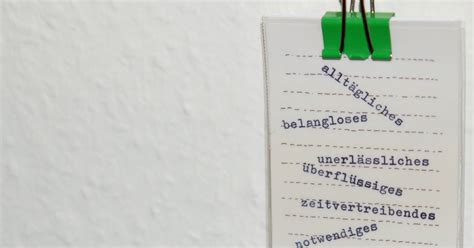 alltägliches
belangloses
unerlässliches
überflüssiges
zeitvertreibendes
notwendiges